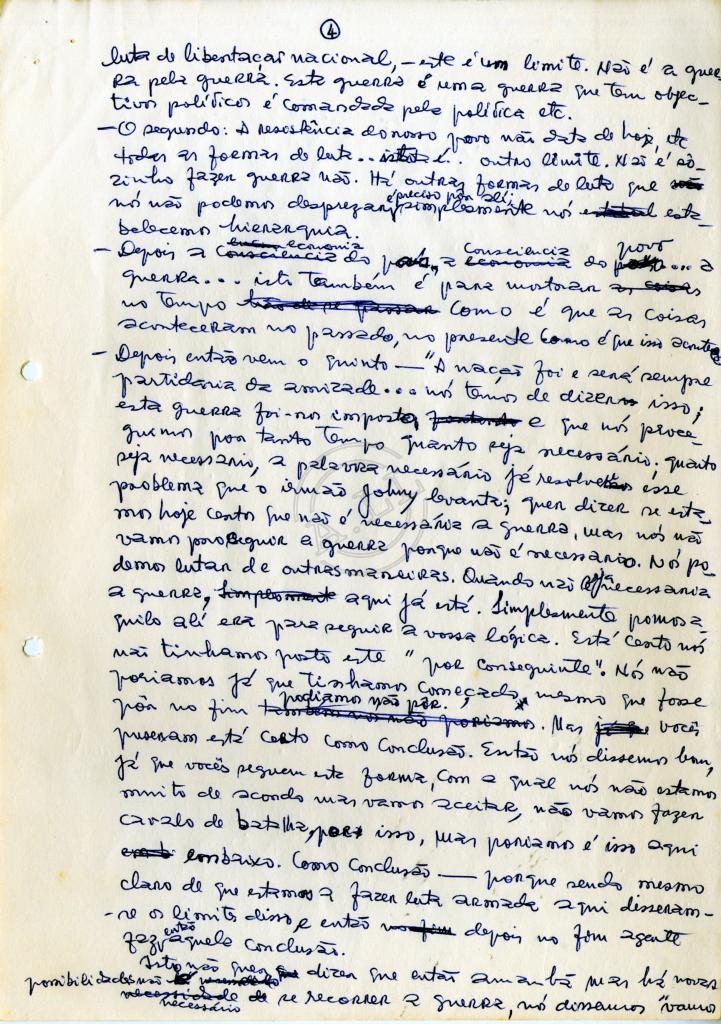 4
luta de libertação nacional, — este é um limite. Não é a guer-
ra pela guerra. Esta guerra é uma guerra que tem objec-
tivos políticos é comandada pela política etc.
— O segundo: A resistência do nosso povo não data de hoje, etc
todas as formas de luta... isto é.. outro limite. Não é só-
zinho fazer guerra não. Há outras formas de luta que
nós não podemos desprezar, é preciso pôr ali, simplesmente nós esta-
belecemos hierarquia.
— Depois a economia do país, a consciência do povo... a
guerra... isto também é para mostrar
no tempo como é que as coisas
aconteceram no passado, no presente como é que isso acontece
— Depois então vem o quinto — "A nação foi e será sempre
partidária da amizade... nós temos de dizer isso;
esta guerra foi-nos imposta, e que nós prosse-
guimos por tanto tempo quanto seja necessário. quanto
seja necessário, a palavra necessário já resolve esse
problema que o irmão Johny levanta; quer dizer se esta-
mos hoje certos que não é necessária a guerra, mas nós não
vamos prosseguir a guerra porque não é necessário. Nós po-
demos lutar de outras maneiras. Quando não seja necessaria
a guerra, aqui já está. Simplesmente pomos a
quilo ali era para seguir a vossa lógica. Está certo nós
não tinhamos posto este "por conseguinte". Nós não
poriamos já que tinhamos começado, mesmo que fosse
pôr no fim podiamos não pôr. Mas vocês
puseram está certo como conclusão. Então nós dissemos bem,
já que vocês seguem esta forma, com a qual nós não estamos
muito de acordo mas vamos aceitar, não vamos fazer
cavalo de batalha, por isso, mas poriamos é isso aqui
em baixo. Como conclusão — porque sendo mesmo
claro de que estamos a fazer luta armada aqui disseram-
-se os limites disso, e então depois no fim agente
faz então aquela conclusão.
Isto não quer dizer que então amanhã mas há novas
possibilidades não necessário de se recorrer a guerra, nós dissemos "vamos